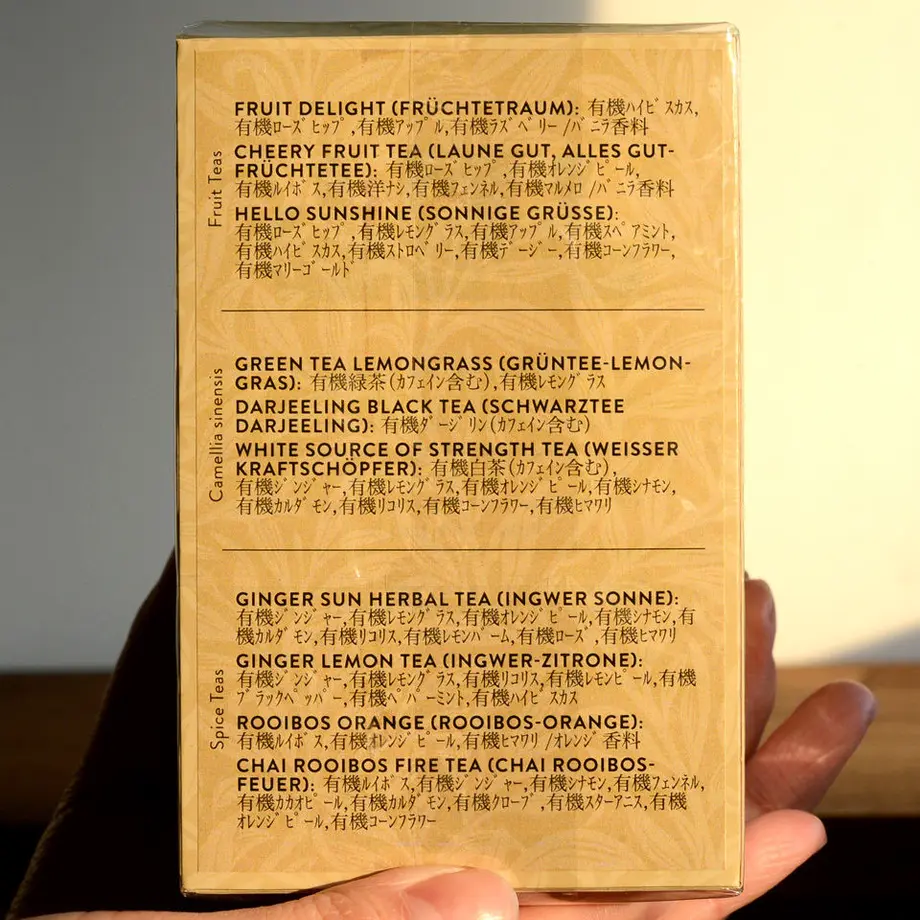 Fruit Teas
FRUIT DELIGHT (FRÜCHTETRAUM): 有機ﾊｲﾋﾞｽｶｽ,
有機ﾛｰｽﾞﾋｯﾌﾟ,有機ｱｯﾌﾟﾙ,有機ﾗｽﾞﾍﾞﾘｰ/ﾊﾞﾆﾗ香料
CHEERY FRUIT TEA (LAUNE GUT, ALLES GUT-
FRÜCHTETEE): 有機ﾛｰｽﾞﾋｯﾌﾟ,有機ｵﾚﾝｼﾞﾋﾟｰﾙ,
有機ﾙｲﾎﾞｽ,有機洋ﾅｼ,有機ﾌｪﾝﾈﾙ,有機ﾏﾙﾒﾛ/ﾊﾞﾆﾗ香料
HELLO SUNSHINE (SONNIGE GRÜSSE):
有機ﾛｰｽﾞﾋｯﾌﾟ,有機ﾚﾓﾝｸﾞﾗｽ,有機ｱｯﾌﾟﾙ,有機ｽﾍﾟｱﾐﾝﾄ,
有機ﾊｲﾋﾞｽｶｽ,有機ｽﾄﾛﾍﾞﾘｰ,有機ﾃﾞｰｼﾞｰ,有機ｺｰﾝﾌﾗﾜｰ,
有機ﾏﾘｰｺﾞｰﾙﾄﾞ
Camellia sinensis
GREEN TEA LEMONGRASS (GRÜNTEE-LEMON-
GRAS): 有機緑茶(ｶﾌｪｲﾝ含む),有機ﾚﾓﾝｸﾞﾗｽ
DARJEELING BLACK TEA (SCHWARZTEE
DARJEELING): 有機ﾀﾞｰｼﾞﾘﾝ(ｶﾌｪｲﾝ含む)
WHITE SOURCE OF STRENGTH TEA (WEISSER
KRAFTSCHÖPFER): 有機白茶(ｶﾌｪｲﾝ含む),
有機ｼﾞﾝｼﾞｬｰ,有機ﾚﾓﾝｸﾞﾗｽ,有機ｵﾚﾝｼﾞﾋﾟｰﾙ,有機ｼﾅﾓﾝ,
有機ｶﾙﾀﾞﾓﾝ,有機ﾘｺﾘｽ,有機ｺｰﾝﾌﾗﾜｰ,有機ﾋﾏﾜﾘ
Spice Teas
GINGER SUN HERBAL TEA (INGWER SONNE):
有機ｼﾞﾝｼﾞｬｰ,有機ﾚﾓﾝｸﾞﾗｽ,有機ｵﾚﾝｼﾞﾋﾟｰﾙ,有機ｼﾅﾓﾝ,有
機ｶﾙﾀﾞﾓﾝ,有機ﾘｺﾘｽ,有機ﾚﾓﾝﾊﾞｰﾑ,有機ﾛｰｽﾞ,有機ﾋﾏﾜﾘ
GINGER LEMON TEA (INGWER-ZITRONE):
有機ｼﾞﾝｼﾞｬｰ,有機ﾚﾓﾝｸﾞﾗｽ,有機ﾘｺﾘｽ,有機ﾚﾓﾝﾋﾟｰﾙ,有機
ﾌﾞﾗｯｸﾍﾟｯﾊﾟｰ,有機ﾍﾟﾊﾟｰﾐﾝﾄ,有機ﾊｲﾋﾞｽｶｽ
ROOIBOS ORANGE (ROOIBOS-ORANGE):
有機ﾙｲﾎﾞｽ,有機ｵﾚﾝｼﾞﾋﾟｰﾙ,有機ﾋﾏﾜﾘ/ｵﾚﾝｼﾞ香料
CHAI ROOIBOS FIRE TEA (CHAI ROOIBOS-
FEUER): 有機ﾙｲﾎﾞｽ,有機ｼﾞﾝｼﾞｬｰ,有機ｼﾅﾓﾝ,有機ﾌｪﾝﾈﾙ,
有機ｶｶｵﾋﾟｰﾙ,有機ｶﾙﾀﾞﾓﾝ,有機ｸﾛｰﾌﾞ,有機ｽﾀｰｱﾆｽ,有機
ｵﾚﾝｼﾞﾋﾟｰﾙ,有機ｺｰﾝﾌﾗﾜｰ